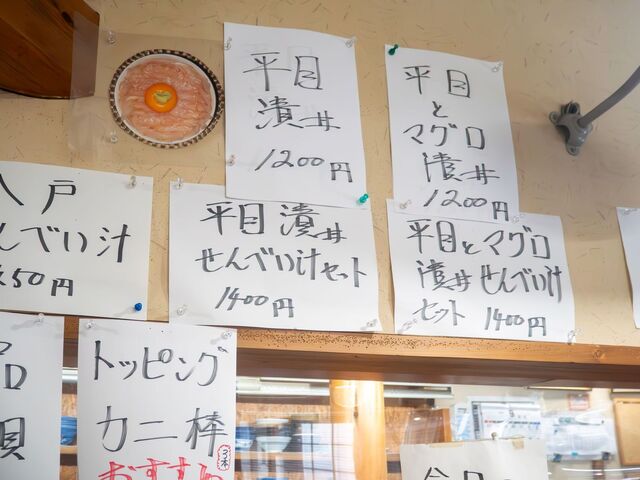 平目
漬丼
1200円
平目
と
マグロ
漬丼
1200円
八戸
せんべい汁
50円
平目漬丼
せんべい汁セット
1400円
平目とマグロ
漬丼せんべい汁
セット 1400円
トッピング
カニ棒
3本
おすすめ